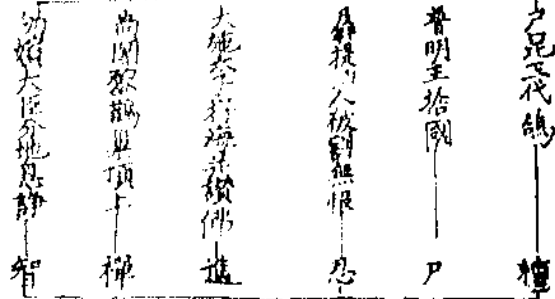 尸毘王代鴿―檀
普明王捨國―尸
羼提仙人被割無恨―忍
大施太子抒海并讚佛―進
尚闍梨鵲巢頂上―禪
劬嬪大臣分地息諍―智